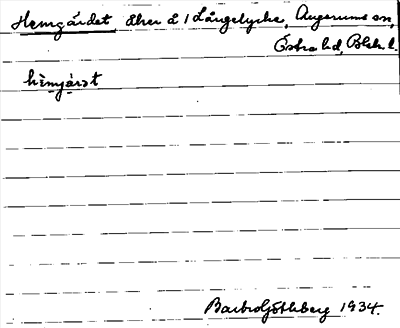 Hemgärdet åker å 1 Långelycke, Augerums sn,
Östra hd, Blek. l.
hèmjạ̈rət
Barbro Göthberg 1934.